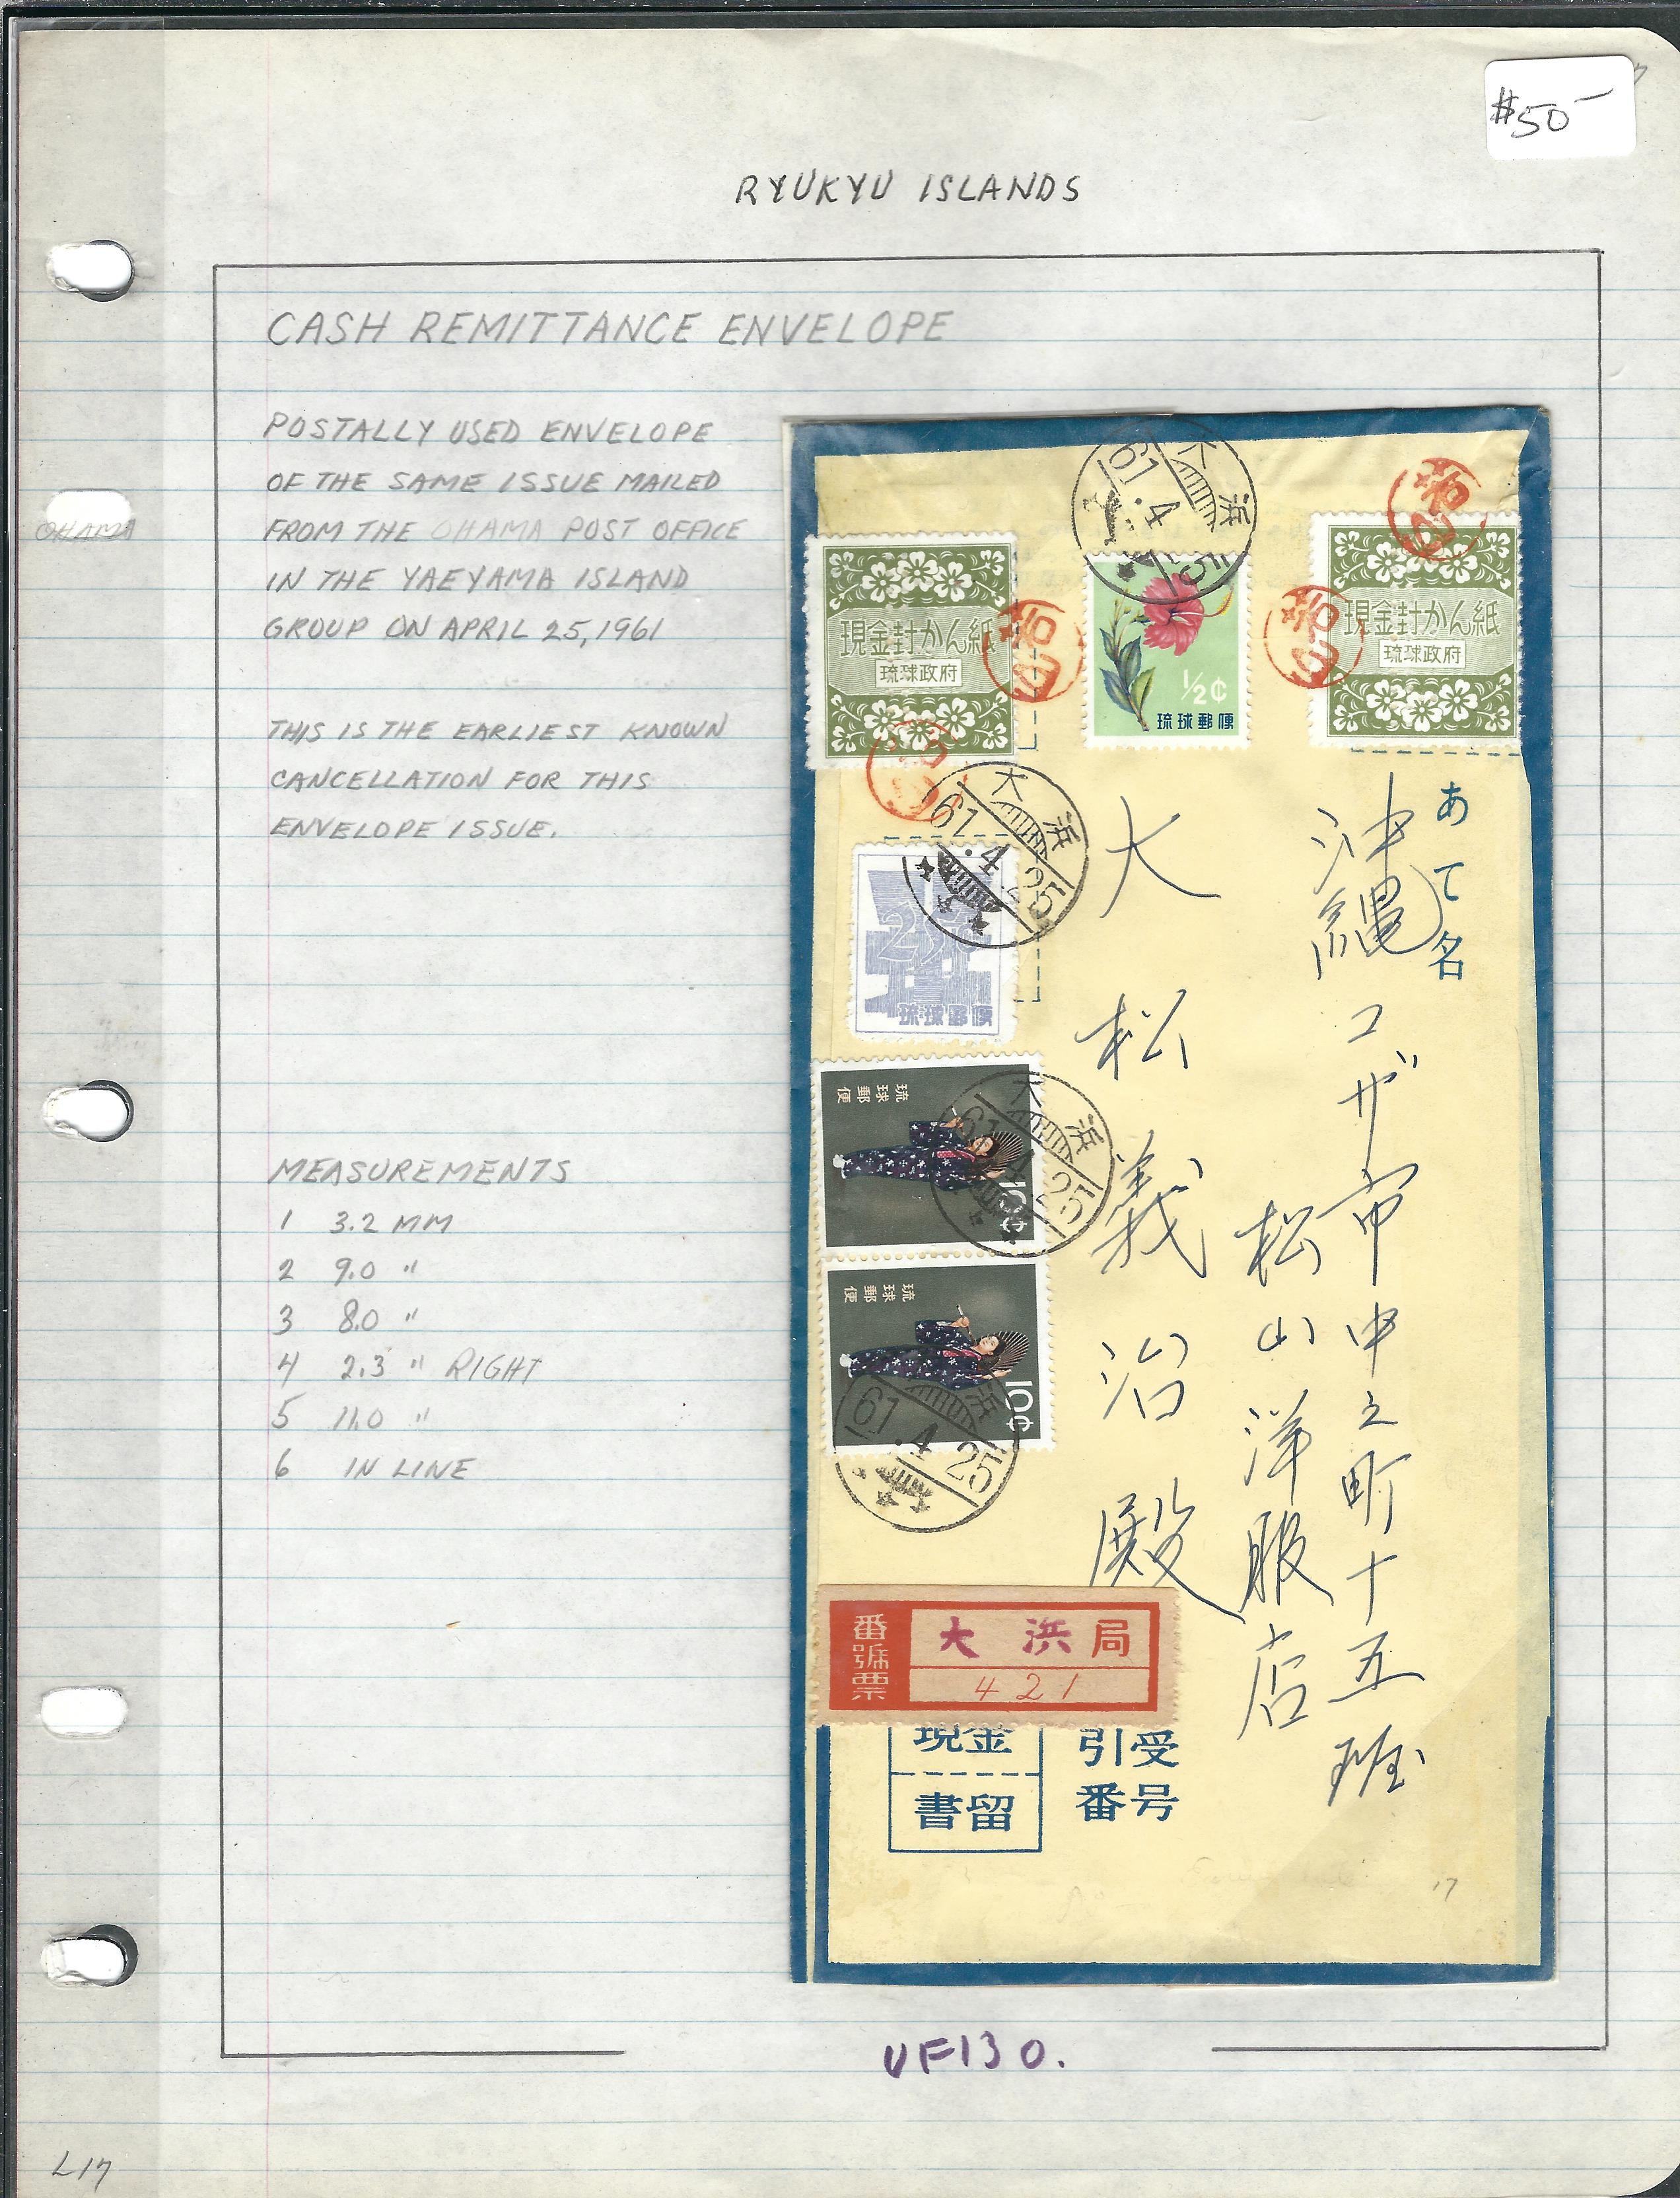 $50-
RYUKYU ISLANDS
CASH REMITTANCE ENVELOPE
POSTALLY USED ENVELOPE
OF THE SAME ISSUE MAILED
OHAMA
FROM THE OHAMA POST OFFICE
IN THE YAEYAMA ISLAND
GROUP ON APRIL 25, 1961
THIS IS THE EARLIEST KNOWN
CANCELLATION FOR THIS
ENVELOPE ISSUE.
MEASUREMENTS
1 3.2 MM
2 9.0 "
3 8.0 "
4 2.3 " RIGHT
5 11.0 "
6 IN LINE
大浜
61.4.25
現金封かん紙
琉球政府
½¢
琉球郵便
現金封かん紙
琉球政府
あて名
沖縄コザ市中之町十五班
松山洋服店
大松義治殿
大浜
61.4.25
琉球郵便
琉球郵便
10¢
大浜
61.4.25
琉球郵便
10¢
浜
61.4.25
番號票
大浜局
421
現金
書留
引受
番号
17
UF130.
L17